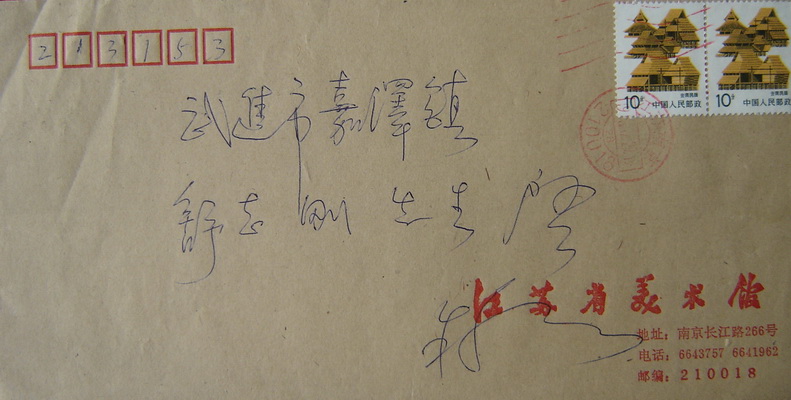 213153
10分 中国人民邮政
10分 中国人民邮政
武進市嘉澤鎮
舒志刚 先生 啓
江苏省美术馆
地址：南京长江路266号
电话：6643757 6641962
邮编：210018